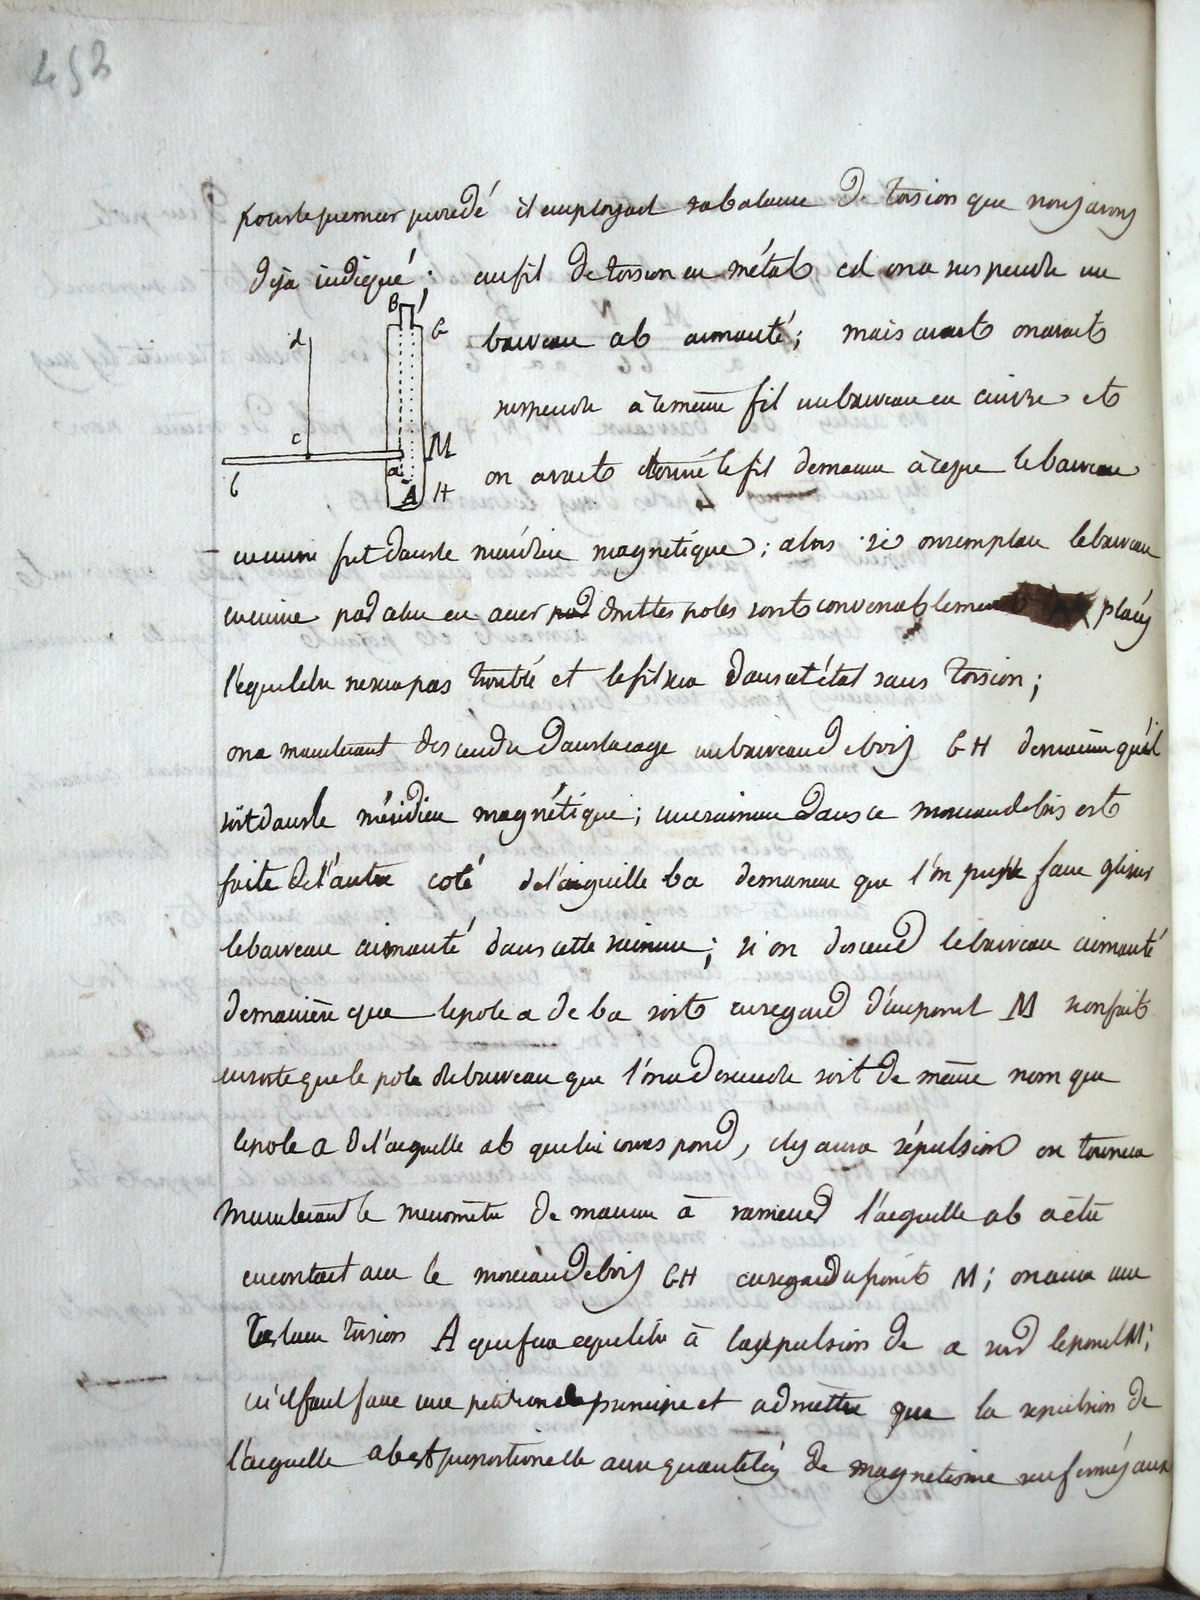 452
pour le premier procédé il employait sa balance de torsion que nous avons
déja indiqué; au fil de torsion en métal cd on a suspendu un
B G
d
barreau ab aimanté; mais avant on avait
suspendu à ce meme fil un barreau en cuivre et
c M
b a A H
on avait tourné le fil de maniere à ce que le barreau
en cuivre fut dans le méridien magnétique; alors si on remplace le barreau
en cuivre par celui en acier dont les poles sont convenablement placés
l'equilibre ne sera pas troublé et le fil sera dans cet état sans torsion;
on a maintenant descendu dans la cage un barreau de bois GH de maniere qu'il
soit dans le méridien magnétique; une rainure dans ce morceau de bois est
faite de l'autre coté de l'aiguille ba de maniere que l'on puisse faire glisser
le barreau aimanté dans cette rainure; si on descend le barreau aimanté
de manière que le pole a de ba soit en regard d'un point M si on fait
en sorte que le pole du barreau que l'on a descendu soit de même nom que
le pole a de l'aiguille ab que lui correspond, il y aura répulsion on tournera
maintenant le micromètre de maniere à ramener l'aiguille ab a être
en contact avec le morceau de bois GH en regard du point M; on aura une
torsion A qui fera equilibre à la répulsion de a sur le point M;
ici il faut faire une petition de principe et admettre que la repulsion de
l'aiguille ab est proportionelle aux quantités de magnetisme renfermés aux